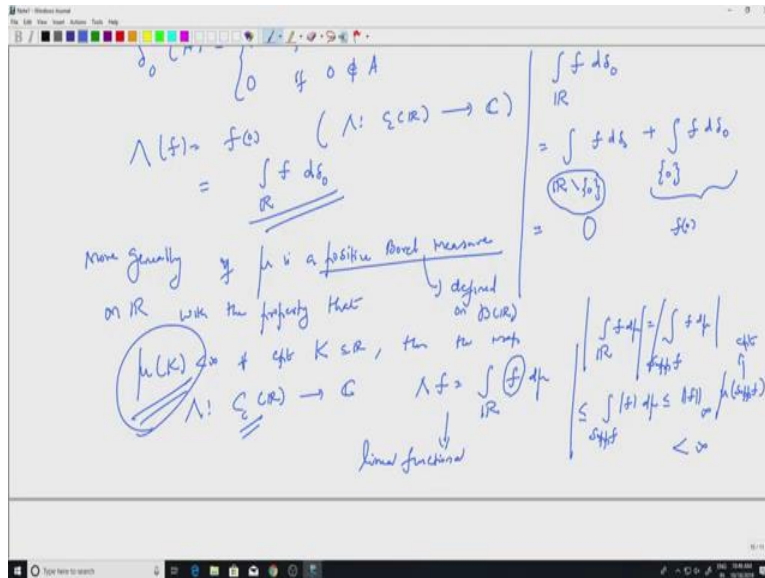 Note1 - Windows Journal
File Edit View Insert Actions Tools Help
δ₀(A) = {
0 if 0 ∉ A
Λ(f) = f(0) (Λ: C_c(ℝ) → ℂ)
= ∫_ℝ f dδ₀
More generally if μ is a positive Borel measure
↳ defined on B(ℝ)
on ℝ with the property that
μ(K) < ∞ ∀ cpt K ⊆ ℝ, then the map
Λ: C_c(ℝ) → ℂ Λf = ∫_ℝ f dμ
↓
linear functional
∫_ℝ f dδ₀
= ∫_{ℝ\{0}} f dδ₀ + ∫_{{0}} f dδ₀
= 0 f(0)
|∫_ℝ f dμ| = |∫_{Supp f} f dμ|
cpt
≤ ∫_{Supp f} |f| dμ ≤ ‖f‖_∞ μ(Supp f)
< ∞
Type here to search
ENG